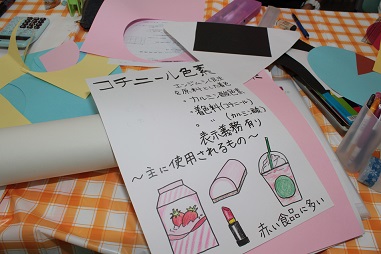 コチニール色素
エンジムシ（昆虫）
を原料とした着色
・カルミン酸色素
・着色料（コチニール）
・　〃　（カルミン酸）
表示義務有り
～主に使用されるもの～
赤い食品に多い